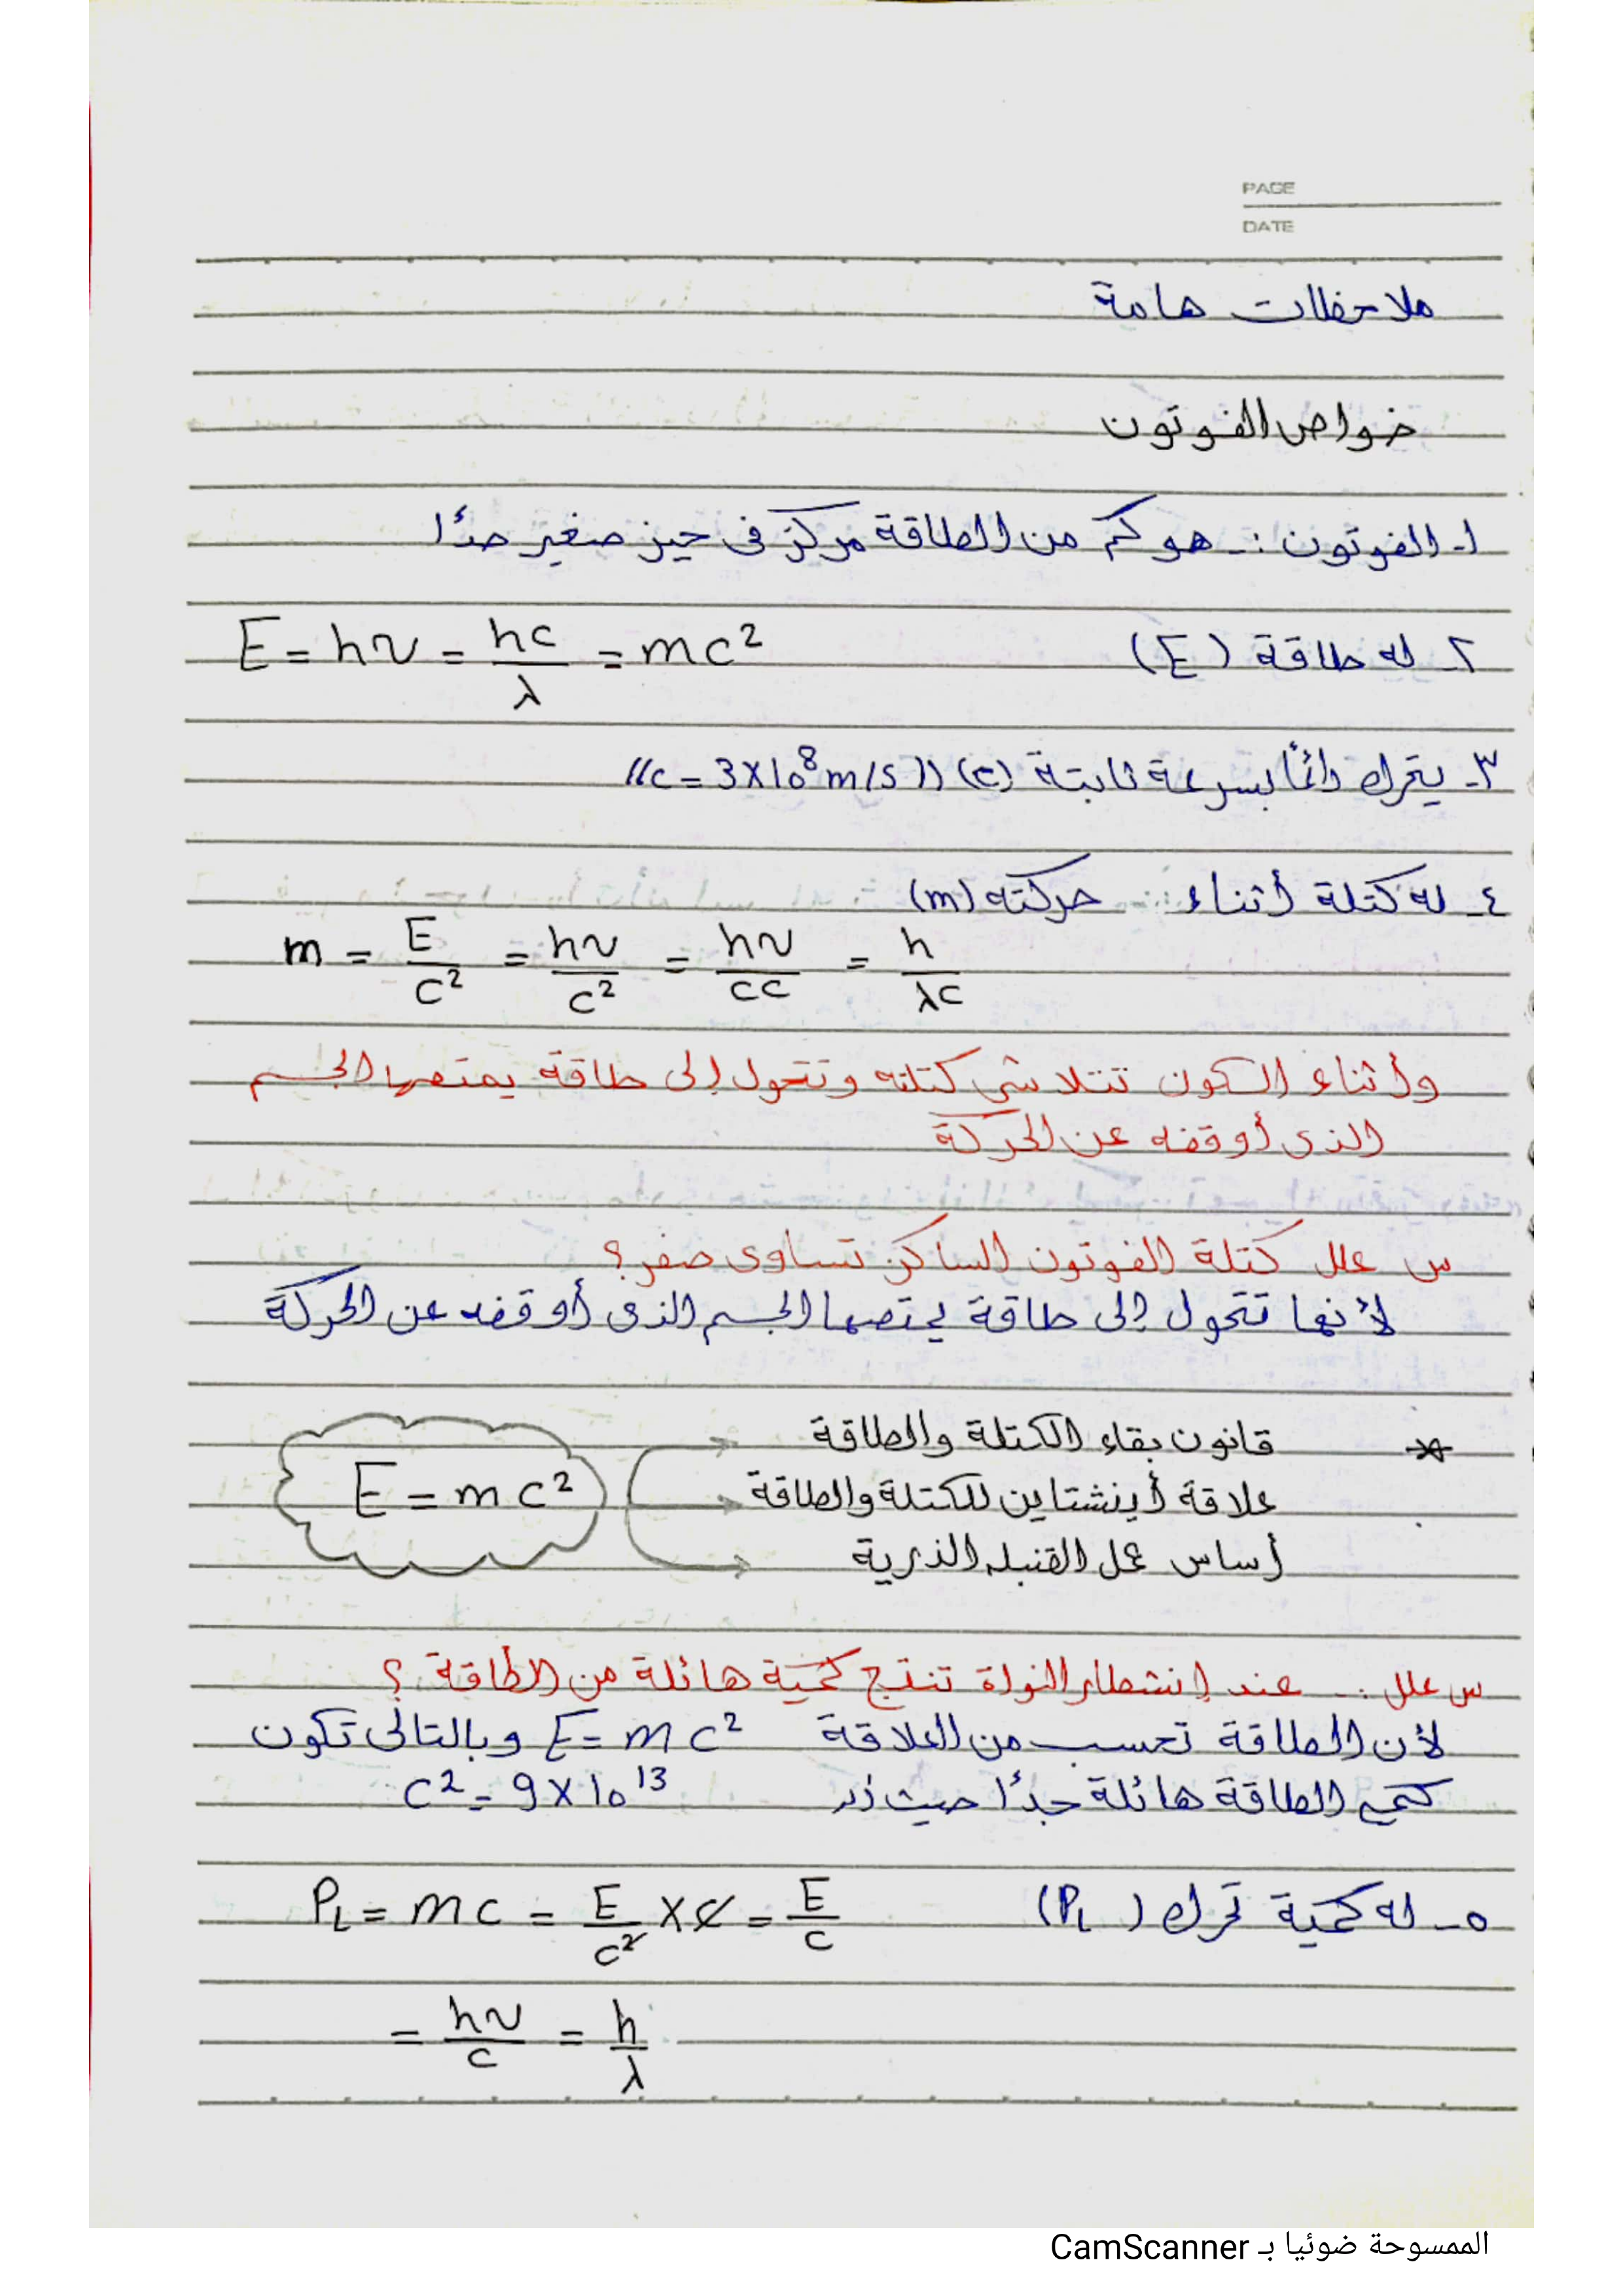 PAGE
DATE
ملاحظات هامة
خواص الفوتون
١- الفوتون :- هو كم من الطاقة مركز فى حيز صغير جدًا
٢- له طاقة (E) E = hν = hc/λ = mc²
٣- يتحرك دائمًا بسرعة ثابتة (c) ((c = 3×10⁸ m/s))
٤- له كتلة أثناء حركته (m)
m = E/c² = hν/c² = hν/cc = h/λc
وأثناء السكون تتلاشى كتلته وتتحول إلى طاقة يمتصها الجسم
الذى أوقفه عن الحركة
س علل كتلة الفوتون الساكن تساوى صفر؟
لأنها تتحول إلى طاقة يمتصها الجسم الذى أوقفه عن الحركة
* قانون بقاء الكتلة والطاقة
علاقة أينشتاين للكتلة والطاقة
E = mc²
أساس عمل القنبله الذرية
س علل :- عند إنشطار النواة تنتج كمية هائلة من الطاقة ؟
لأن الطاقة تحسب من العلاقة E = mc² وبالتالى تكون
الطاقة هائلة جدًا حيث c² = 9×10¹³
٥- له كمية تحرك (P_L) P_L = mc = E/c² × c = E/c
= hν/c = h/λ
الممسوحة ضوئيا بـ CamScanner